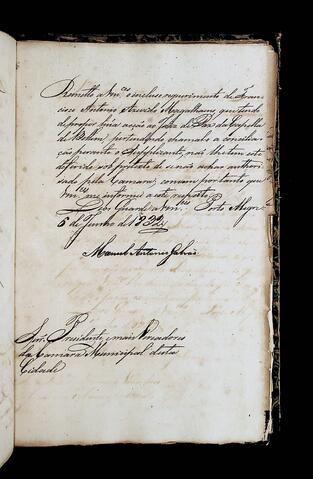 Remetto a Vmces o incluso requerimento de Fran-
cisco Antonio Azevedo Magalhaens que tendo
de propor hũa acção ao Juiz de Paz da Capella
de Bellem, pertendendo chamal-o a concilia-
ção perante o Supplicante, não lhe tem este
diferido sob pretexto de se não achar authori-
sado pela Camara; convem portanto, que
Vmces me informem a este respeito.
Deos Guarde a Vmces Porto Alegre
5 de Junho de 1832
Manoel Antonio Galvão
Snr. Presidente, e mais Vereadores
da Camara Municipal desta
Cidade